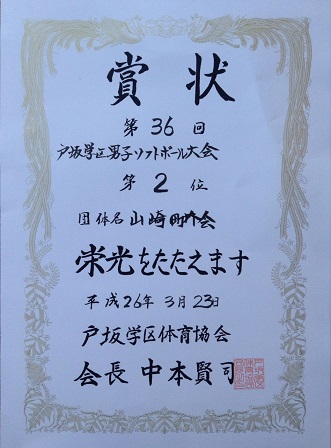 賞状
第36回
戸坂学区男子ソフトボール大会
第2位
団体名 山崎町内会
栄光をたたえます
平成26年3月23日
戸坂学区体育協会
会長 中本賢司